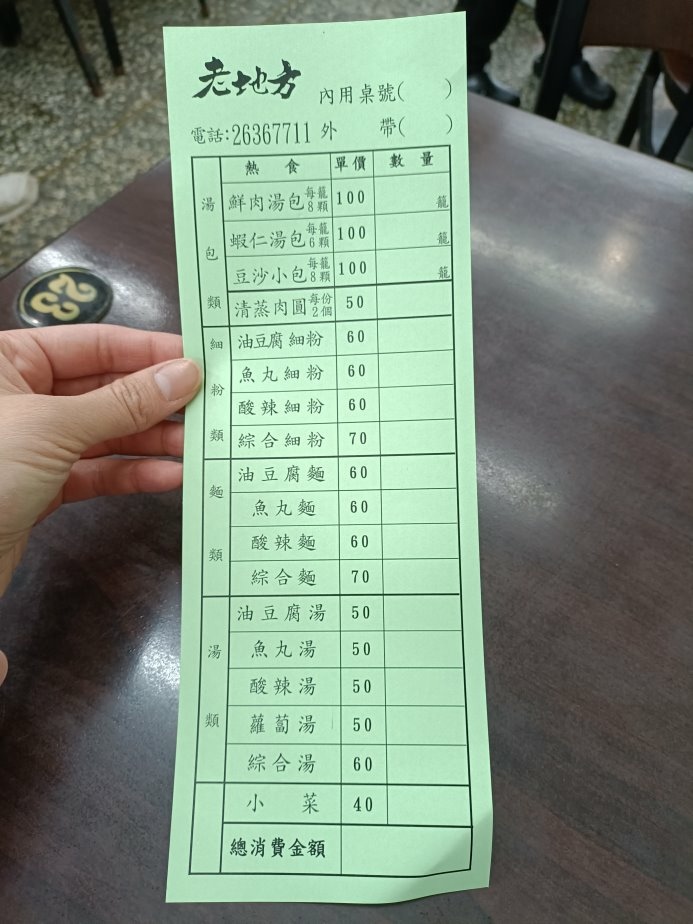 老地方
內用桌號( )
電話:26367711 外 帶( )
熱 食 單價 數 量
湯包類
鮮肉湯包 每籠8顆 100 籠
蝦仁湯包 每籠6顆 100 籠
豆沙小包 每籠8顆 100 籠
清蒸肉圓 每份2個 50
細粉類
油豆腐細粉 60
魚丸細粉 60
酸辣細粉 60
綜合細粉 70
麵類
油豆腐麵 60
魚丸麵 60
酸辣麵 60
綜合麵 70
湯類
油豆腐湯 50
魚丸湯 50
酸辣湯 50
蘿蔔湯 50
綜合湯 60
小 菜 40
總消費金額
23